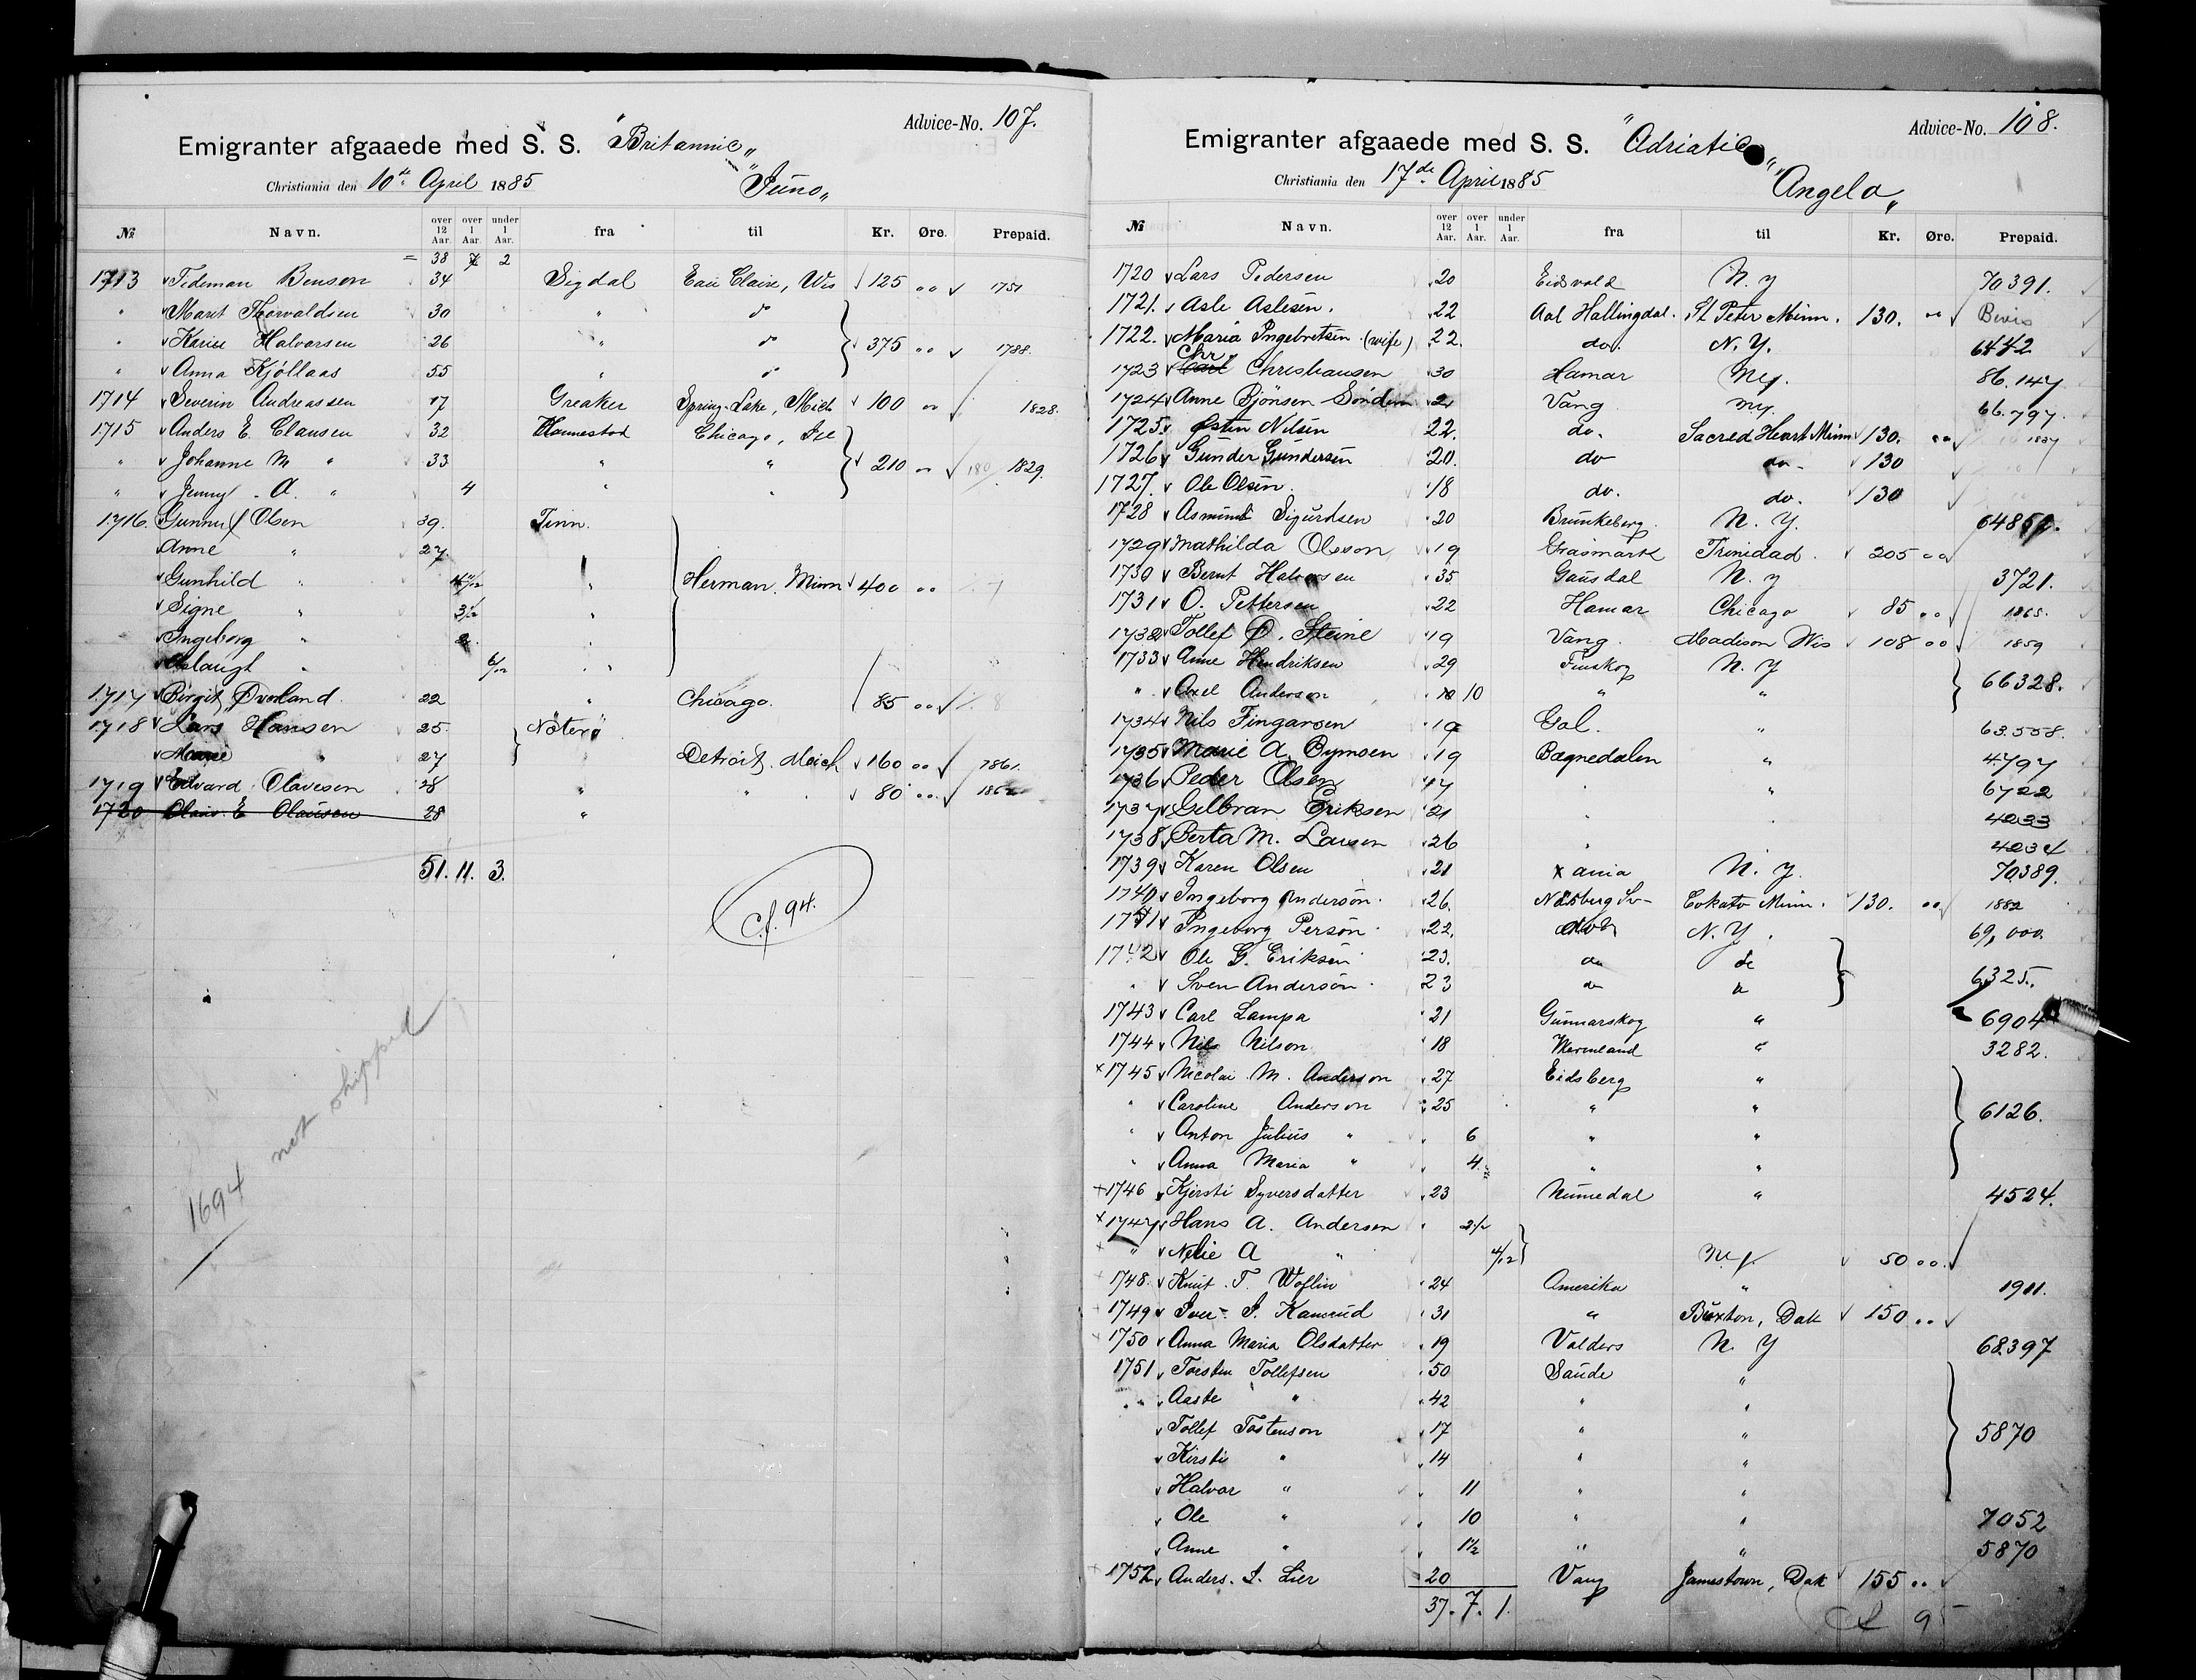 Advice-No. 107.
Emigranter afgaaede med S. S. "Britannic"
Christiania den 10de April 1885 "Juno"
№ Navn. over 12 Aar. over 1 Aar. under 1 Aar. fra til Kr. Øre. Prepaid.
= 38 7 2
1713 Tideman Benson 34 Sigdal Eau Claire, Wis 125 " 1751
" Marit Thorvaldsen 30 " do
" Karine Halvorsen 26 " do 375 " 1788.
" Anna Kjöllaas 55 " do
1714 Severin Andreassen 17 Greaker Spring-Lake, Mich 100 " 1828.
1715 Anders E. Clausen 32 Hannestad Chicago, Ill
" Johanne M " 33 " " 210 " 1829.
" Jenny A. " 4 " "
1716. Gunnul Olsen 39. Tinn.
Anne " 27.
Gunhild " " Herman. Minn 400 "
Signe " "
Ingeborg "
Aslaugt " 6/12 "
1717 Birgit Øverland 22 " Chicago. 85 "
1718 Lars Hansen 25. Nøterø
Marie " 27 Detroit. Mich 160 " 1861.
1719 Edvard Olavesen 28 " " 80 "
1720 Olaus E Olausen 28 "
51. 11. 3.
cf. 94.
1694 not shipped
Advice-No. 108.
Emigranter afgaaede med S. S. "Adriatic"
Christiania den 17de April 1885 "Angelo"
№ Navn. over 12 Aar. over 1 Aar. under 1 Aar. fra til Kr. Øre. Prepaid.
1720 Lars Pedersen 20 Eidsvold N. Y 70391.
1721. Asle Aslesen. 22 Aal Hallingdal. St Peter Minn. 130. " Bevis
1722. Maria Ingebretsen (wife) 22. do. N. Y. 6442
Chr
1723 Carl Christiansen 30 Hamar N.Y. 86.147
1724 Anne Bjönsen Sönden 21 Vang N.Y. 66.797.
1725. Østen Nilsen 22. do. Sacred Heart Minn 130. " 1837
1726 Gunder Gundersen 20. do do. 130
1727. Ole Olsen. 18 do. do. 130
1728 Asmund Sigurdsen 20 Brunkeberg. N. Y.
1729 Mathilda Olsson 19 Gräsmark Trinidad. 205 "
1730 Bernt Halvorsen 35 Gausdal N. Y 3721.
1731 O. Pettersen 22 Hamar Chicago 85 " 1865.
1732 Tollef O. Steine 19 Vang. Madison Wis 108 " 1859
1733 Anne Hendriksen 29 Finskog N. Y
" Axel Anderson 10 " " 66328.
1734 Nils Fingarsen 19 Gol. " 63558.
1735 Marie A. Bymoen 19 Bægnedalen " 4797
1736 Peder Olsen 17 " " 6722
1737 Gulbran Eriksen 21 " " 4233
1738 Berta M. Larsen 26 " 4234
1739 Karen Olsen 21 Xania N. Y. 70389.
1740 Ingeborg Anderson. 26. Nilsberg Sv- Cokato Minn. 130. " 1882
1741 Ingeborg Person. 22. do N. Y. 69,000.
1742 Ole G. Eriksen 23. do do
" Sven Anderson. 23 do do 6325.
1743 Carl Lampa 21 Gunnarskog " 6904
1744 Nils Nilson 18 Wermland " 3282.
x 1745 Nicolai M. Anderson 27 Eidsberg "
" Caroline Anderson 25 " " 6126.
" Anton Julius " 6 " "
" Anna Maria " 4 " "
+ 1746 Kjersti Syversdatter 23 Numedal " 4524.
x 1747 Hans A. Andersen 2 1/2
" Nelie A " 4/12 N.Y. 50 "
1748. Knut T. Woflin 24 Amerika " 1911.
1749 Iver I. Kamrud 31 " Buxton, Dak 150 "
1750 Anna Maria Olsdatter 19 Valders N. Y 68397
1751 Torsten Tollefsen 50 Saude "
" Aaste " 42 " "
Tollef Tostenson 17 " " 5870
Kirsti " 14 " "
Halvor " 11 " "
Ole " 10 " " 7052
Anne " 1 1/2 " " 5870
1752 Anders. I. Lier 20 Vang Jamestown, Dak 155 "
37. 7. 1.
cf 95